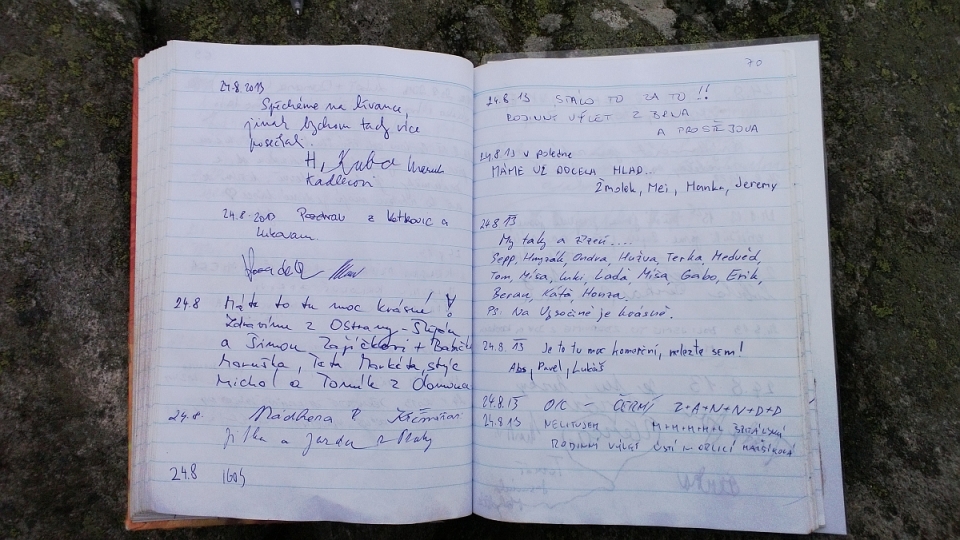 24.8.2013
Spěcháme na lívance,
jinak bychom tady více
posečkali.
H, Kuba
Kadlecovi
24.8.2013 Pozdrav z a
24.8 Máte to tu moc krásné!
Zdravíme z Ostravy - Štěpán
a Šimon Zajíčkovi +
Maruška, Teta Markéta, strýc
Michal a Tomík z Olomouce
24.8. Nádhera
Jitka a Jarda z Prahy
24.8
70
24.8.13 STÁLO TO ZA TO !!
RODINNÝ VÝLET Z BRNA
A PROSTĚJOVA
24.8.13 v poledne
MÁME UŽ DOCELA HLAD...
Zmolek, Mei, Hanka, Jeremy
24.8 13
My taky a žízeň....
Sepp, Hmyzák, Ondra, Hužva, Terka, Medvěd,
Tom, Míša, Luki, Lada, Míša, Gabo, Erik,
Beran, Káťa, Honza
PS: Na Vysočině je krásně.
24.8. 13 Je to tu moc komerční, nelozte sem!
Abs, Pavel, Lukáš
24.8.13 ČERNÝ Z+A+N+N+D+D
24.8.13 NELITUJEM M+M+M+M+L
RODINNÝ VÝLET